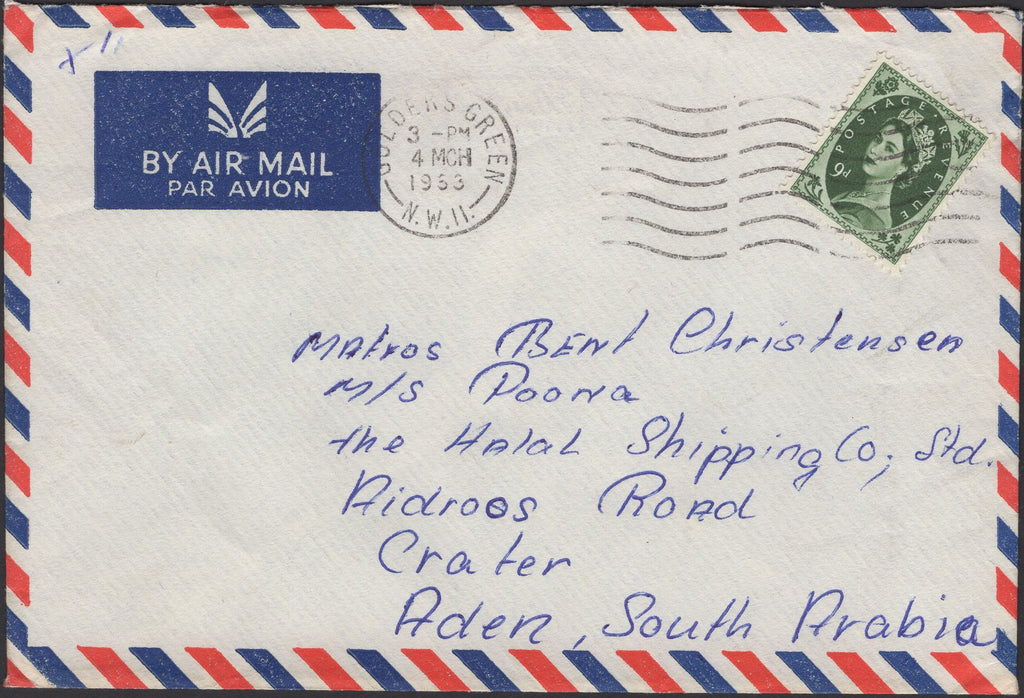 BY AIR MAIL
PAR AVION
GOLDERS GREEN
3 - PM
4 MCH
1963
N.W.11.
POSTAGE REVENUE
9D
Matros Bent Christensen
M/S Poona
the Halal Shipping Co, Std.
Aidroos Road
Crater
Aden, South Arabia